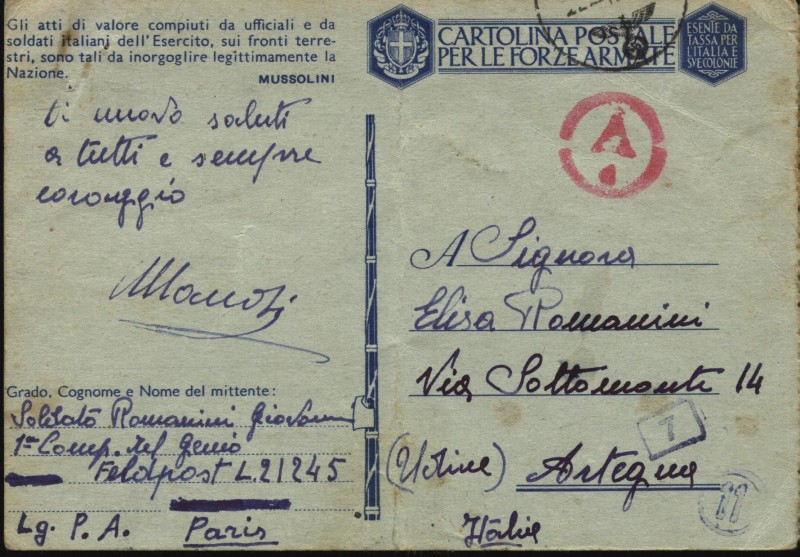 Gli atti di valore compiuti da ufficiali e da
soldati italiani dell'Esercito, sui fronti terre-
stri, sono tali da inorgoglire legittimamente la
Nazione.
MUSSOLINI
ti nuovo saluti
a tutti e sempre
coraggio
Grado, Cognome e Nome del mittente:
Soldato Romanini Giovanni
1ª Comp. del Genio
Feldpost L.21245
Lg. P. A. Paris
CARTOLINA POSTALE
PER LE FORZE ARMATE
ESENTE DA
TASSA PER
L'ITALIA E
SUE COLONIE
A
A Signora
Elisa Romanini
Via Sottomonte 14
7
(Udine) Artegna
Italie